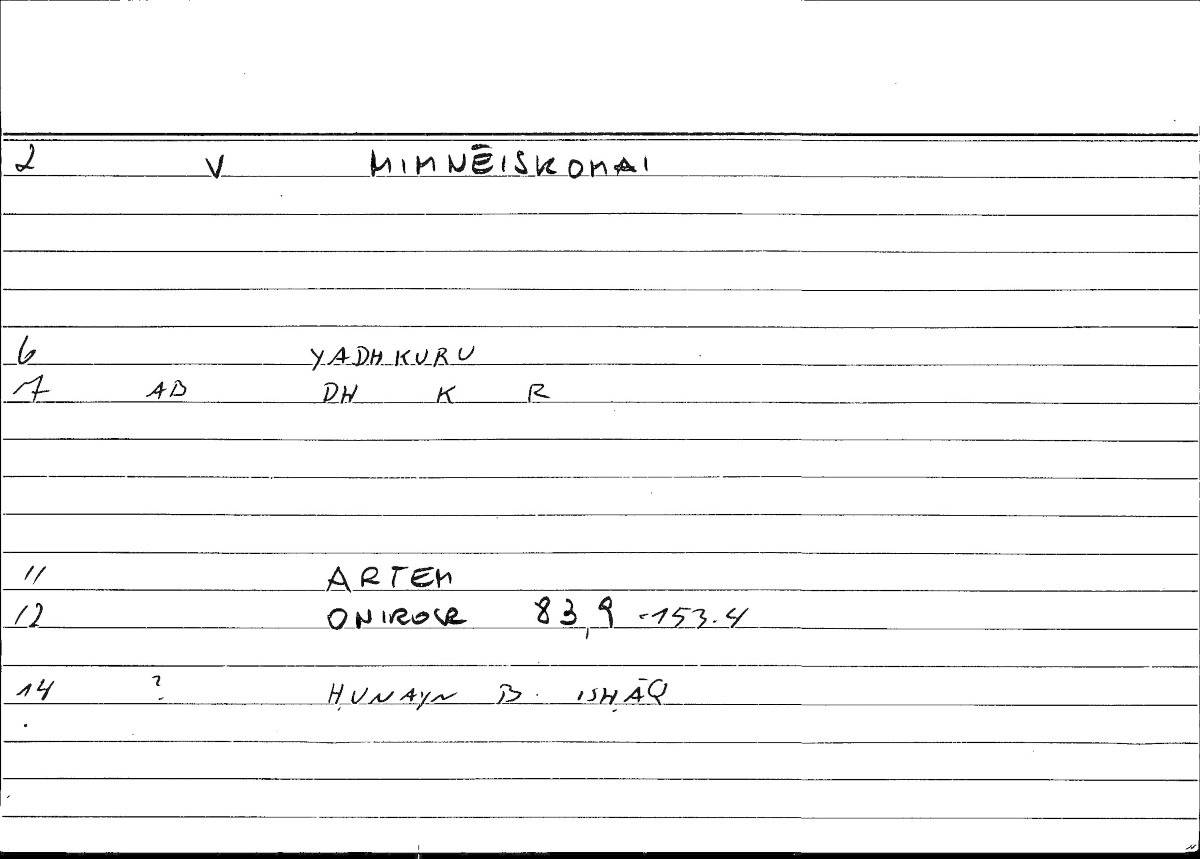 2 V MIMNĒISKOMAI
6 YADHKURU
7 AB DH K R
11 ARTEM
12 ONIROCR 83,9 -153.4
14 ? ḤUNAYN B. ISḤĀQ